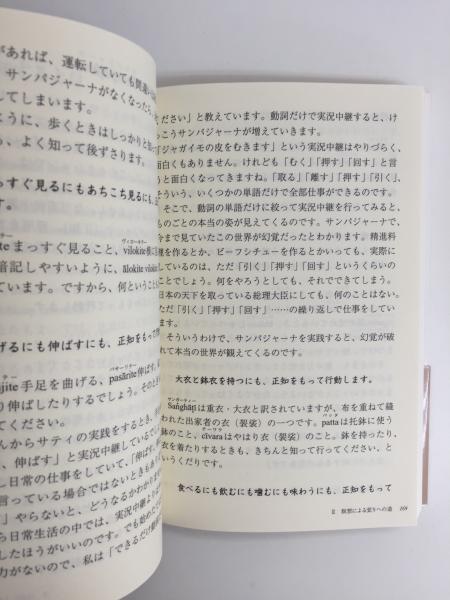 があれば、運転していても間違い
サンパジャーナがなくなったら、
してしまいます。
ように、歩くときはしっかりと
、よく知って後ずさります。
っすぐ見るにもあちこち見るにも、
す。
まっすぐ見ること、
ヴィローキテー
vilokite
暗記しやすいように、ālokite vilokite
ています。ですから、何という
げるにも伸ばすにも、正知をもって
手足を曲げる、
パサーリテー
pasārite伸ばす。
り伸ばしたりするでしょう。そのとき
てください。
んからサティの実践をするとき、
、伸ばす」と実況中継しているで
し日常の仕事をしていて、「伸ばす、
言っている場合ではないときもあり
」やらないと、どうなるかわかりま
ら日常生活の中では、実況中継より
したほうがいいのです。でも始めた
力がないので、私は「できるだけ動
ください」と教えています。動詞だけで実況中継すると、け
っこうサンパジャーナが増えていきます。
「ジャガイモの皮をむきます」という実況中継はやりづらく、
面白くもありません。けれども「むく」「押す」「回す」と言
うと面白くなってきますね。「取る」「離す」「押す」「引く」、
そういう、いくつかの単語だけで全部仕事ができるのです。
そこで、動詞の単語だけに絞って実況中継を行ってみると、
ものごとの本当の姿が見えてくるのです。サンパジャーナで、
今まで見ていたこの世界が幻覚だったとわかります。精進料
理を作るとか、ビーフシチューを作るとかいっても、実際に
しているのは、ただ「引く」「押す」「回す」というくらいの
ことでしょう。何をやろうとしても、それでできてしまう。
日本の天下を取っている総理大臣にしても、何のことはない。
ただ「引く」「押す」「回す」……の繰り返しで仕事をしてい
ます。
そういうわけで、サンパジャーナを実践すると、幻覚が破
れて本当の世界が観えてくるのです。
大衣と鉢衣を持つにも、正知をもって行動します。
サンガーティー
Saṅghāṭiは重衣・大衣と訳されていますが、布を重ねて縫
パッタ
われた出家者の衣（袈裟）の一つです。pattaは托鉢に使う
チーワラ
鉢のこと、cīvaraはやはり衣（袈裟）のこと。鉢を持ったり、
衣を着たりするときも、きちんと知って行ってください、と
いうくだりです。
食べるにも飲むにも噛むにも味わうにも、正知をもって
Ⅱ 瞑想による悟りへの道 169